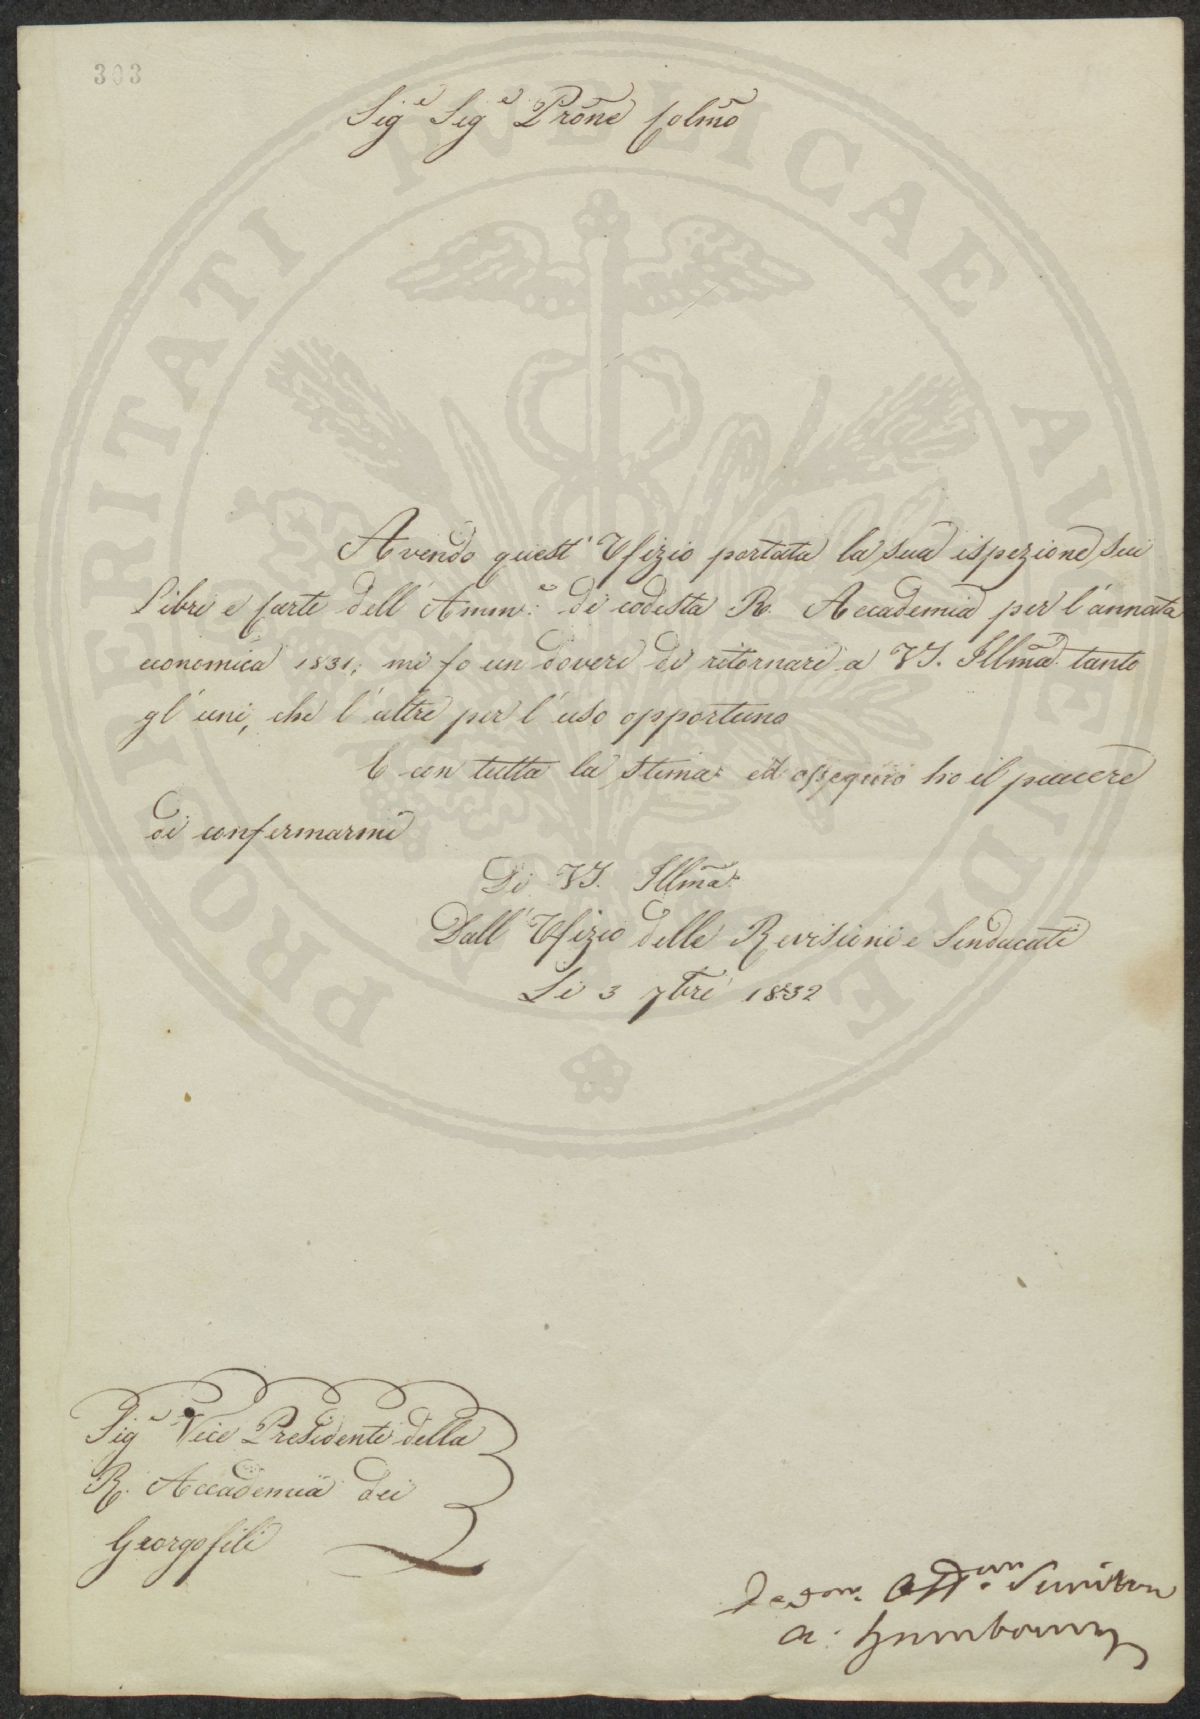 303
Sig.e Sig.e Prone Colmo
PROSPERITATI PVBLICAE AVGENDAE
Avendo quest' Ufizio portata la sua ispezione sui
Libri e Carte dell' Amm.e di codesta R. Accademia per l'annata
economica 1831, mi fo un dovere di ritornare a VS. Illma tanto
gl' uni, che l' altre per l' uso opportuno
E con tutta la stima ed ossequio ho il piacere
di confermarmi
Di VS. Illma
Dall' Ufizio delle Revisioni e Sindacati
Li 3 7bre 1832
Sig.e Vice Presidente della
R. Accademia dei
Georgofili